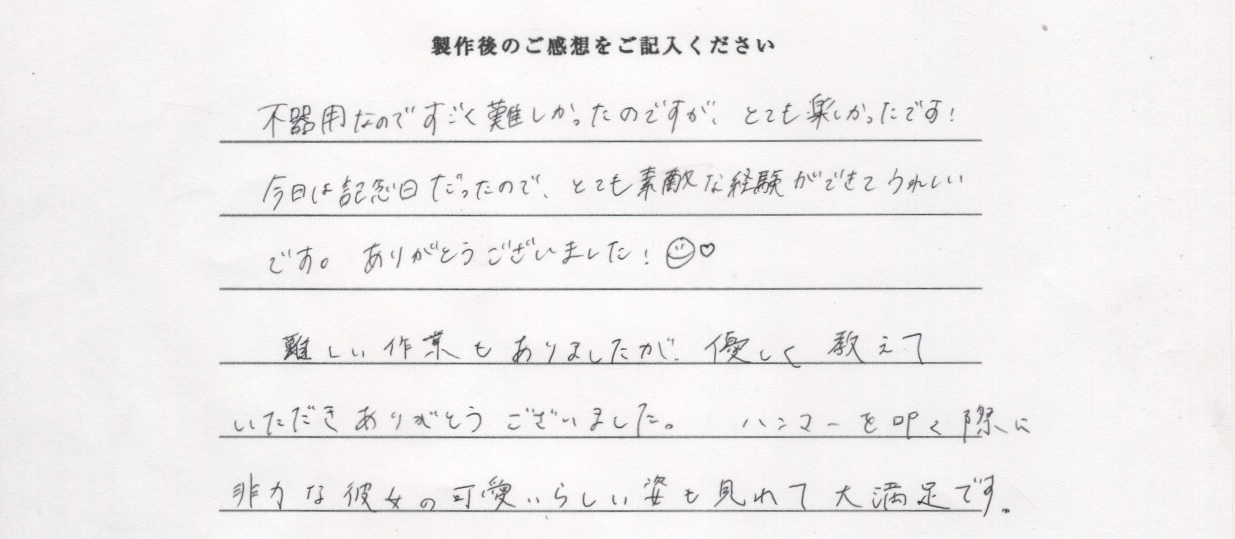 製作後のご感想をご記入ください
不器用なのですごく難しかったのですが、とても楽しかったです!
今日は記念日だったので、とても素敵な経験ができてうれしい
です。ありがとうございました!☺♡
難しい作業もありましたが、優しく教えて
いただきありがとうございました。 ハンマーを叩く際に
非力な彼女の可愛いらしい姿も見れて大満足です。